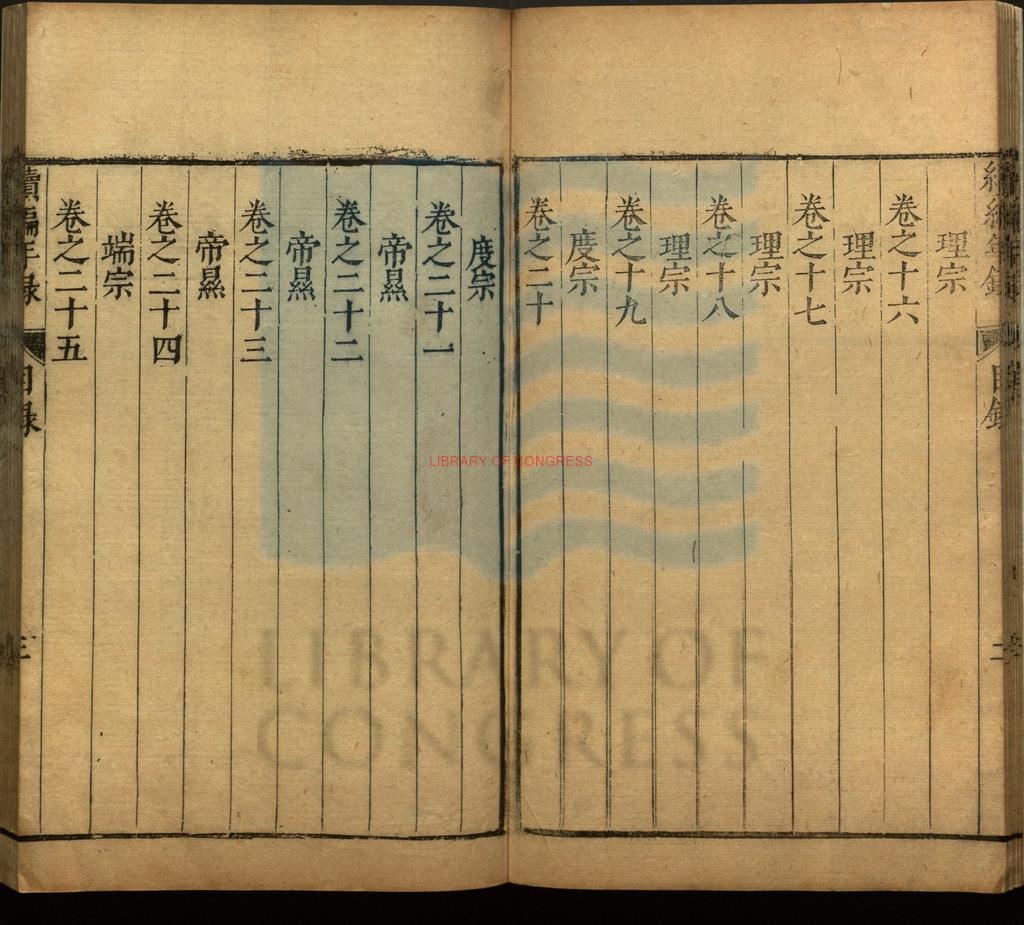 理宗
卷之十六
理宗
卷之十七
理宗
卷之十八
理宗
卷之十九
度宗
卷之二十
度宗
卷之二十一
帝㬎
卷之二十二
帝㬎
卷之二十三
帝㬎
卷之二十四
端宗
卷之二十五
續編年錄
目錄
三
LIBRARY OF CONGRESS
LIBRARY OF
CONGRESS